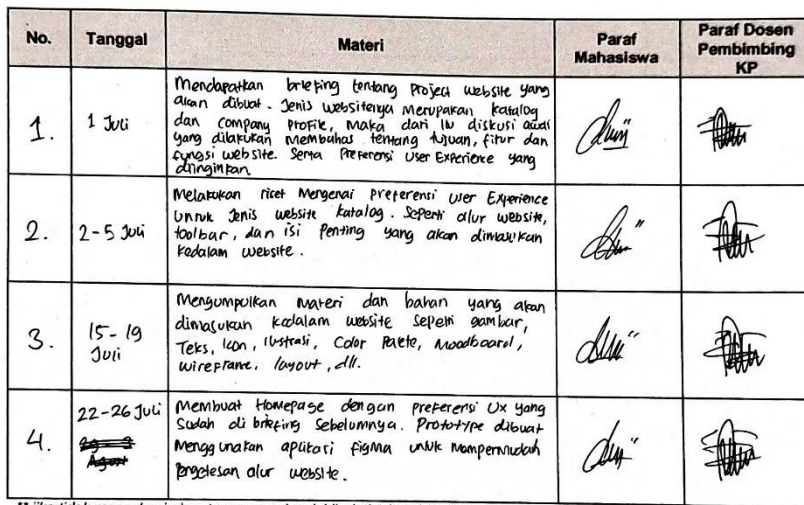 No. Tanggal Materi Paraf Mahasiswa Paraf Dosen Pembimbing KP
1. 1 Juli
Mendapatkan briefing tentang Project website yang
akan dibuat. Jenis websitenya Merupakan katalog
dan Company Profile, Maka dari itu diskusi awal
yang dilakukan membahas tentang tujuan, fitur dan
fungsi website. Serta Preferensi User Experience yang
diinginkan.
2. 2-5 Juli
Melakukan riset Mengenai preferensi user Experience
Untuk Jenis website katalog. Seperti alur website,
toolbar, dan isi Penting yang akan dimasukan
kedalam website.
3. 15-19 Juli
Mengumpulkan materi dan bahan yang akan
dimasukan kedalam website seperti gambar,
Teks, Icon, Ilustrasi, Color Palete, Moodboard,
wireframe, layout, dll.
4. 22-26 Juli
Membuat Homepage dengan preferensi Ux yang
Sudah di briefing Sebelumnya. Prototype dibuat
Menggunakan aplikasi figma untuk mempermudah
alur website.